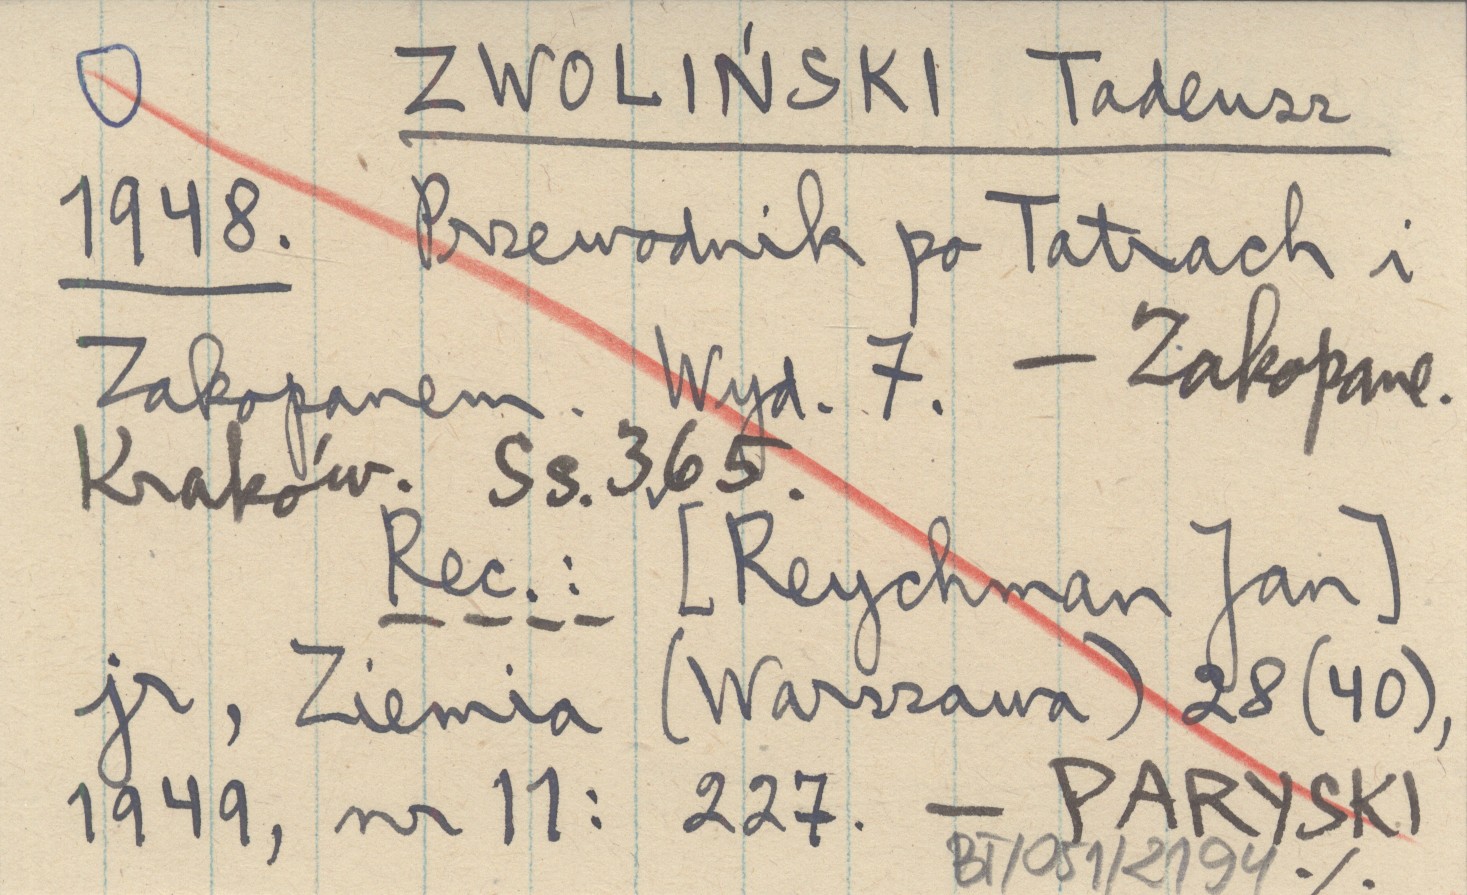 ZWOLIŃSKI Tadeusz
1948. Przewodnik po Tatrach i
Zakopanem. Wyd. 7. — Zakopane.
Kraków. Ss. 365.
Rec.: [Reychman Jan]
jr, Ziemia (Warszawa) 28 (40),
1949, nr 11: 227. — PARYSKI
BT/051/2194 ./.